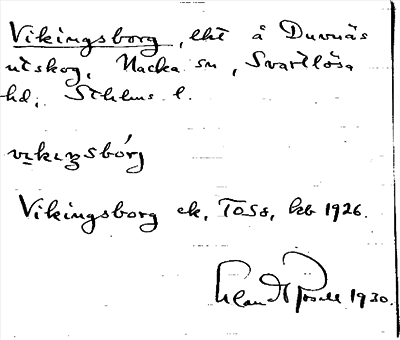 Vikingsborg, lht å Duvnäs
utskog, Nacka sn, Svartlösa
hd, Sthlms l.
vikiŋsbórg
Vikingsborg ek, TOSö, kb 1926.
1930.